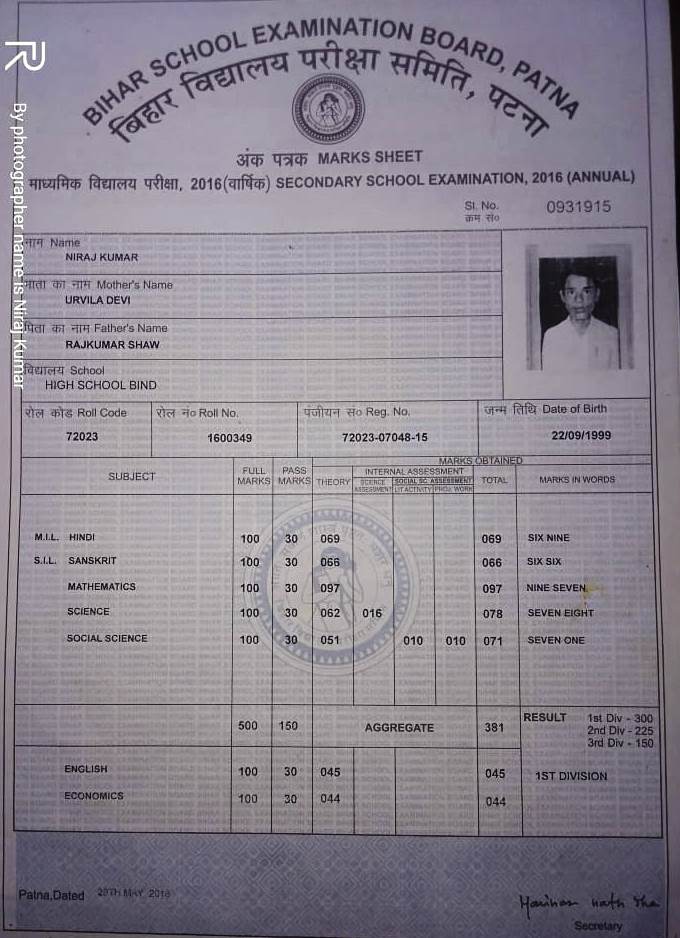 BIHAR SCHOOL EXAMINATION BOARD, PATNA
बिहार विद्यालय परीक्षा समिति, पटना
अंक पत्रक MARKS SHEET
माध्यमिक विद्यालय परीक्षा, 2016(वार्षिक) SECONDARY SCHOOL EXAMINATION, 2016 (ANNUAL)
Sl. No. 0931915
क्रम सं०
नाम Name
NIRAJ KUMAR
माता का नाम Mother's Name
URVILA DEVI
पिता का नाम Father's Name
RAJKUMAR SHAW
विद्यालय School
HIGH SCHOOL BIND
रोल कोड Roll Code रोल नं० Roll No. पंजीयन सं० Reg. No. जन्म तिथि Date of Birth
72023 1600349 72023-07048-15 22/09/1999
MARKS OBTAINED
SUBJECT FULL MARKS PASS MARKS THEORY INTERNAL ASSESSMENT TOTAL MARKS IN WORDS
SCIENCE ASSESSMENT SOCIAL SC. ASSESSMENT
LIT ACTIVITY PROJ. WORK
M.I.L. HINDI 100 30 069 069 SIX NINE
S.I.L. SANSKRIT 100 30 066 066 SIX SIX
MATHEMATICS 100 30 097 097 NINE SEVEN
SCIENCE 100 30 062 016 078 SEVEN EIGHT
SOCIAL SCIENCE 100 30 051 010 010 071 SEVEN ONE
500 150 AGGREGATE 381 RESULT 1st Div - 300
2nd Div - 225
3rd Div - 150
ENGLISH 100 30 045 045 1ST DIVISION
ECONOMICS 100 30 044 044
Patna,Dated 29TH MAY 2016
Harihar nath Jha
Secretary
R
By photographer name is Niraj Kumar